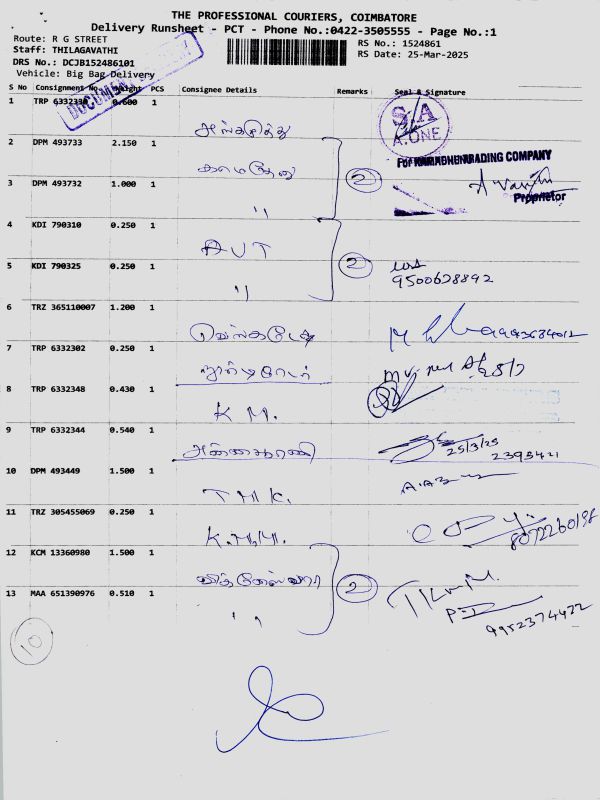 THE PROFESSIONAL COURIERS, COIMBATORE
Delivery Runsheet - PCT - Phone No.:0422-3505555 - Page No.:1
Route: R G STREET
Staff: THILAGAVATHI
DRS No.: DCJB152486101
Vehicle: Big Bag Delivery
RS No.: 1524861
RS Date: 25-Mar-2025
S No Consignment No. Weight PCS Consignee Details Remarks Seal & Signature
1 TRP 0.600 1
S.A
A.ONE
2 DPM 493733 2.150 1 காமதேனு
For TRADING COMPANY
3 DPM 493732 1.000 1 "
2
Proprietor
4 KDI 790310 0.250 1 AVT
5 KDI 790325 0.250 1 "
2
9500628892
6 TRZ 365110007 1.200 1
7 TRP 6332302 0.250 1
8 TRP 6332348 0.430 1 K M.
9 TRP 6332344 0.540 1
25/3/25
10 DPM 493449 1.500 1 T M K.
11 TRZ 305455069 0.250 1 K.M.M.
8072260198
12 KCM 13360980 1.500 1 விக்னேஸ்வரா
13 MAA 651390976 0.510 1 "
2
9952374422
10